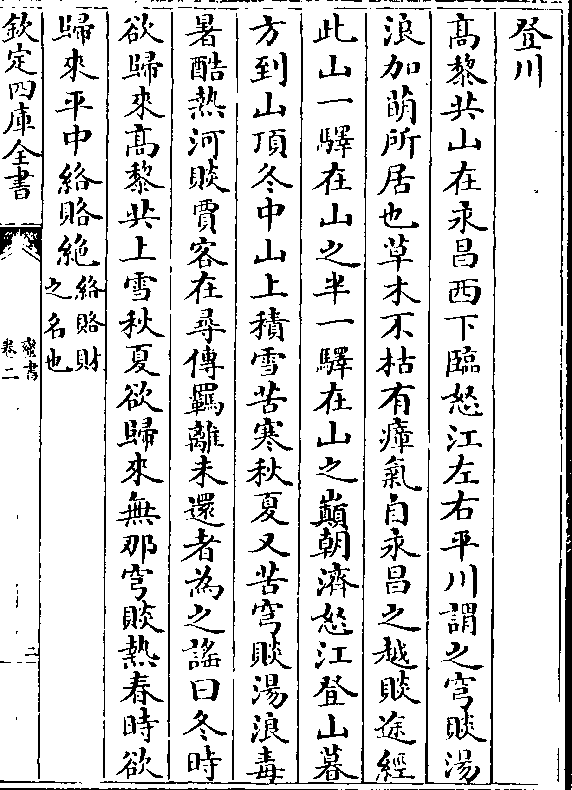 登川
高黎共山在永昌西下臨怒江左右平川謂之穹賧湯
浪加萌所居也草木不枯有瘴氣自永昌之越賧途經
此山一驛在山之半一驛在山之巔朝濟怒江登山暮
方到山頂冬中山上積雪苦寒秋夏又苦穹賧湯浪毒
暑酷熱河賧賈客在尋傳羈離未還者為之謠曰冬時
欲歸來高黎共上雪秋夏欲歸來無那穹賧熱春時欲
歸來平中絡賂絶絡賂財之名也
欽定四庫全書
蠻書
卷二
二